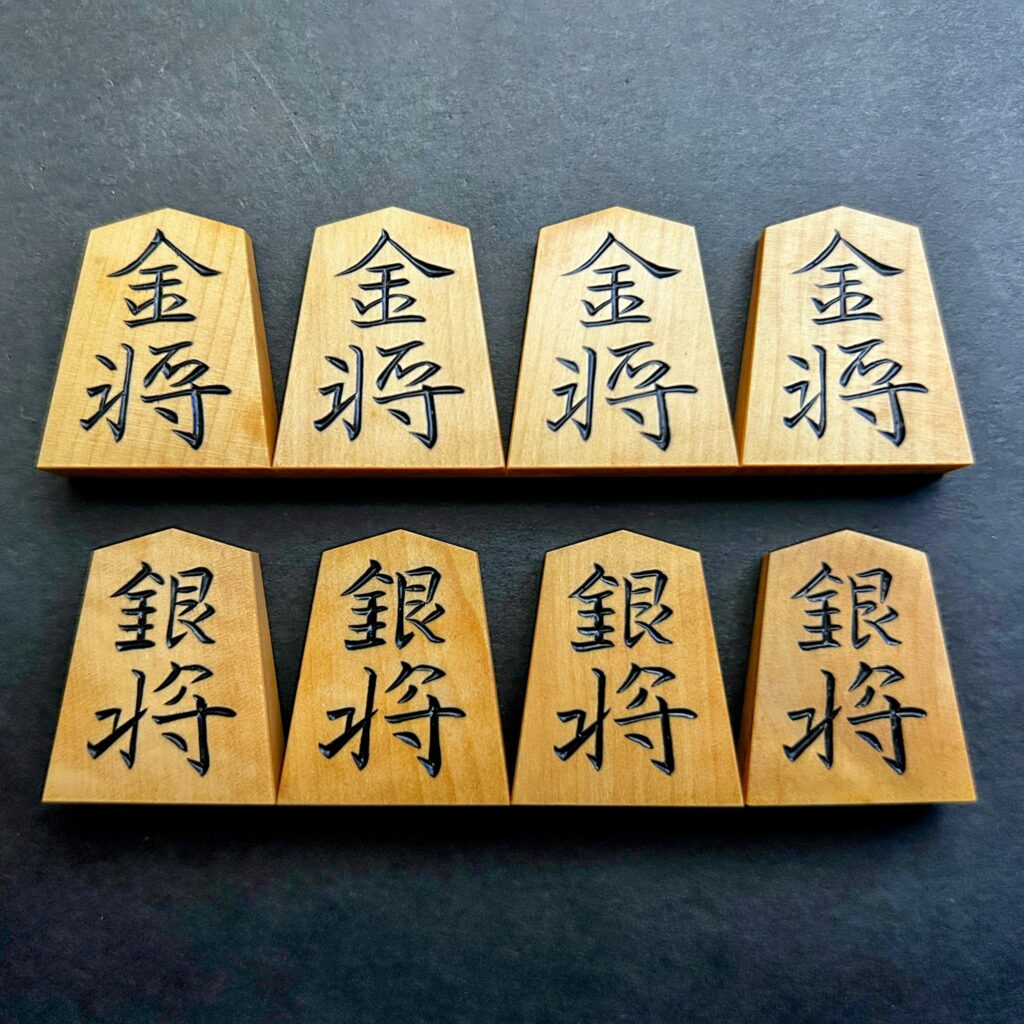 金将 金将 金将 金将
銀将 銀将 銀将 銀将